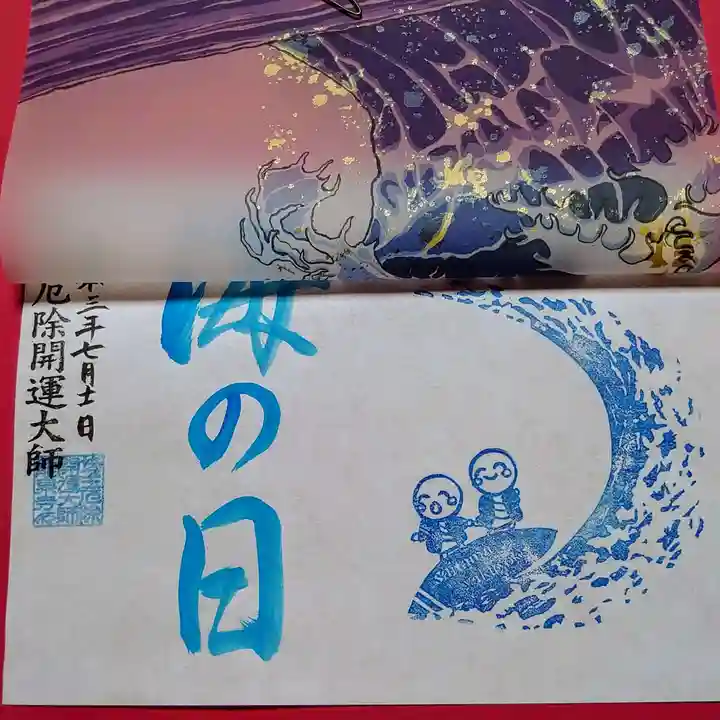 海の日
和三年七月十一日
厄除開運大師